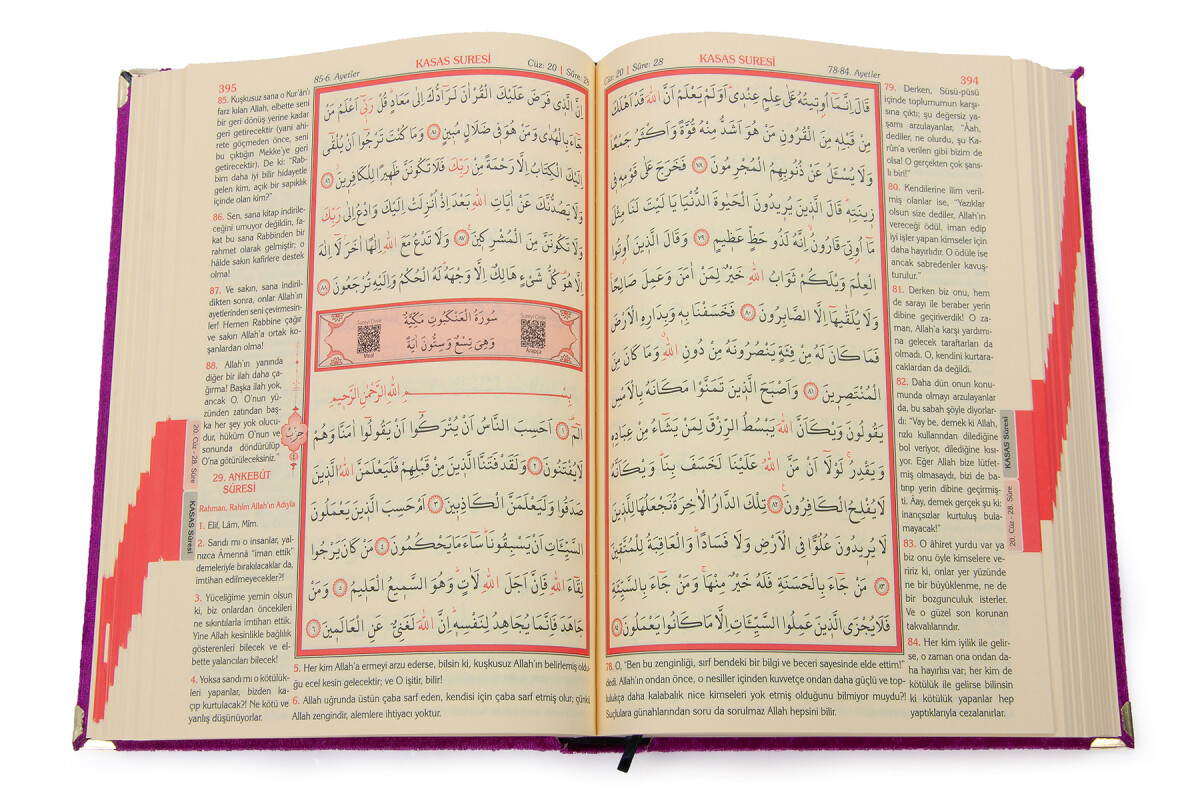 78-84. Ayetler
KASAS SURESİ
Cüz: 20 | Sûre: 28
394
قَالَ اِنَّمَٓا اُو۫ت۪يتُهُ عَلٰى عِلْمٍ عِنْد۪يۜ اَوَلَمْ يَعْلَمْ اَنَّ اللّٰهَ قَدْ اَهْلَكَ
مِنْ قَبْلِه۪ مِنَ الْقُرُونِ مَنْ هُوَ اَشَدُّ مِنْهُ قُوَّةً وَاَكْثَرُ جَمْعًاۜ
وَلَا يُسْـَٔلُ عَنْ ذُنُوبِهِمُ الْمُجْرِمُونَ ﴿٧٨﴾ فَخَرَجَ عَلٰى قَوْمِه۪ ف۪ي
ز۪ينَتِه۪ۜ قَالَ الَّذ۪ينَ يُر۪يدُونَ الْحَيٰوةَ الدُّنْيَا يَا لَيْتَ لَنَا مِثْلَ
مَٓا اُو۫تِيَ قَارُونُۙ اِنَّهُ لَذُو حَظٍّ عَظ۪يمٍ ﴿٧٩﴾ وَقَالَ الَّذ۪ينَ اُو۫تُوا
الْعِلْمَ وَيْلَكُمْ ثَوَابُ اللّٰهِ خَيْرٌ لِمَنْ اٰمَنَ وَعَمِلَ صَالِحًاۚ
وَلَا يُلَقّٰيهَٓا اِلَّا الصَّابِرُونَ ﴿٨٠﴾ فَخَسَفْنَا بِه۪ وَبِدَارِهِ الْاَرْضَ
فَمَا كَانَ لَهُ مِنْ فِئَةٍ يَنْصُرُونَهُ مِنْ دُونِ اللّٰهِۗ وَمَا كَانَ مِنَ
الْمُنْتَصِر۪ينَ ﴿٨١﴾ وَاَصْبَحَ الَّذ۪ينَ تَمَنَّوْا مَكَانَهُ بِالْاَمْسِ
يَقُولُونَ وَيْكَاَنَّ اللّٰهَ يَبْسُطُ الرِّزْقَ لِمَنْ يَشَٓاءُ مِنْ عِبَادِه۪
وَيَقْدِرُۚ لَوْلَٓا اَنْ مَنَّ اللّٰهُ عَلَيْنَا لَخَسَفَ بِنَاۜ وَيْكَاَنَّهُ
لَا يُفْلِحُ الْكَافِرُونَ۟ ﴿٨٢﴾ تِلْكَ الدَّارُ الْاٰخِرَةُ نَجْعَلُهَا لِلَّذ۪ينَ
لَا يُر۪يدُونَ عُلُوًّا فِي الْاَرْضِ وَلَا فَسَادًاۜ وَالْعَاقِبَةُ لِلْمُتَّق۪ينَ
﴿٨٣﴾ مَنْ جَٓاءَ بِالْحَسَنَةِ فَلَهُ خَيْرٌ مِنْهَاۚ وَمَنْ جَٓاءَ بِالسَّيِّئَةِ
فَلَا يُجْزَى الَّذ۪ينَ عَمِلُوا السَّيِّـَٔاتِ اِلَّا مَا كَانُوا يَعْمَلُونَ ﴿٨٤﴾
78. O, "Ben bu zenginliği, sırf bendeki bir bilgi ve beceri sayesinde elde ettim!"
dedi. Allah'ın ondan önce, o nesiller içinden kuvvetçe ondan daha güçlü ve top-
lulukça daha kalabalık nice kimseleri yok etmiş olduğunu bilmiyor muydu?!
Suçlulara günahlarından soru da sorulmaz Allah hepsini bilir.
79. Derken, Süsü-püsü
içinde toplumumun karşı-
sına çıktı; şu değersiz ya-
şamı arzulayanlar, "Âah,
dediler, ne olurdu, şu Ka-
rûn'a verilen gibi bizim de
olsa! O gerçekten çok şans-
lı biri!"
80. Kendilerine ilim veril-
miş olanlar ise, "Yazıklar
olsun size dediler, Allah'ın
vereceği ödül, iman edip
iyi işler yapan kimseler için
daha hayırlıdır. O ödüle ise
ancak sabredenler kavuş-
turulur."
81. Derken biz onu, hem
de sarayı ile beraber yerin
dibine geçiriverdik! O za-
man, Allah'a karşı yardımı-
na gelecek taraftarları da
olmadı. O, kendini kurtara-
caklardan da değildi.
82. Daha dün onun konu-
munda olmayı arzulayanlar
da, bu sabah şöyle diyorlar-
dı: "Vay be, demek ki Allah,
rızkı kullarından dilediğine
bol veriyor, dilediğine kısı-
yor. Eğer Allah bize lütfet-
miş olmasaydı, bizi de ba-
tırıp yerin dibine geçirmiş-
ti. Âay, demek gerçek şu ki:
inançsızlar kurtuluş bulama-
mayacak!"
83. O âhiret yurdu var ya
biz onu öyle kimselere ve-
ririz ki, onlar yer yüzünde
ne bir büyüklenme, ne de
bir bozgunculuk isterler.
Ve o güzel son korunan
takvalılarındır.
84. Her kim iyilik ile gelir-
se, o zaman ona ondan da-
ha hayırlısı var; her kim de
kötülük ile gelirse bilinsin
ki kötülük yapanlar hep
yaptıklarıyla cezalanırlar.
KASAS Sûresi
20. Cüz - 28. Sûre
395
85-6. Ayetler
KASAS SURESİ
Cüz: 20 | Sûre: 28
اِنَّ الَّذ۪ي فَرَضَ عَلَيْكَ الْقُرْاٰنَ لَرَٓادُّكَ اِلٰى مَعَادٍۜ قُلْ رَبّ۪ٓي اَعْلَمُ مَنْ
جَٓاءَ بِالْهُدٰى وَمَنْ هُوَ ف۪ي ضَلَالٍ مُب۪ينٍ ﴿٨٥﴾ وَمَا كُنْتَ تَرْجُٓوا اَنْ يُلْقٰٓى
اِلَيْكَ الْكِتَابُ اِلَّا رَحْمَةً مِنْ رَبِّكَ فَلَا تَكُونَنَّ ظَه۪يرًا لِلْكَافِر۪ينَۘ ﴿٨٦﴾
وَلَا يَصُدُّنَّكَ عَنْ اٰيَاتِ اللّٰهِ بَعْدَ اِذْ اُنْزِلَتْ اِلَيْكَ وَادْعُ اِلٰى رَبِّكَ
وَلَا تَكُونَنَّ مِنَ الْمُشْرِك۪ينَۚ ﴿٨٧﴾ وَلَا تَدْعُ مَعَ اللّٰهِ اِلٰهًا اٰخَرَۢ لَٓا اِلٰهَ
اِلَّا هُوَ۠ كُلُّ شَيْءٍ هَالِكٌ اِلَّا وَجْهَهُۜ لَهُ الْحُكْمُ وَاِلَيْهِ تُرْجَعُونَ ﴿٨٨﴾
سُورَةُ الْعَنْكَبُوتِ مَكِّيَّةٌ
وَهِيَ تِسْعٌ وَسِتُّونَ اٰيَةً
Sureyi Dinle
Meal
Sureyi Dinle
Arapça
بِسْمِ اللّٰهِ الرَّحْمٰنِ الرَّح۪يمِ
الٓمٓ ﴿١﴾ اَحَسِبَ النَّاسُ اَنْ يُتْرَكُٓوا اَنْ يَقُولُٓوا اٰمَنَّا وَهُمْ
لَا يُفْتَنُونَ ﴿٢﴾ وَلَقَدْ فَتَنَّا الَّذ۪ينَ مِنْ قَبْلِهِمْ فَلَيَعْلَمَنَّ اللّٰهُ الَّذ۪ينَ
صَدَقُوا وَلَيَعْلَمَنَّ الْكَاذِب۪ينَ ﴿٣﴾ اَمْ حَسِبَ الَّذ۪ينَ يَعْمَلُونَ
السَّيِّـَٔاتِ اَنْ يَسْبِقُونَاۜ سَٓاءَ مَا يَحْكُمُونَ ﴿٤﴾ مَنْ كَانَ يَرْجُوا
لِقَٓاءَ اللّٰهِ فَاِنَّ اَجَلَ اللّٰهِ لَاٰتٍۜ وَهُوَ السَّم۪يعُ الْعَل۪يمُ ﴿٥﴾ وَمَنْ
جَاهَدَ فَاِنَّمَا يُجَاهِدُ لِنَفْسِه۪ۜ اِنَّ اللّٰهَ لَغَنِيٌّ عَنِ الْعَالَم۪ينَ ﴿٦﴾
حزب
85. Kuşkusuz sana o Kur'ân'ı
farz kılan Allah, elbette seni
bir geri dönüş yerine kadar
geri getirecektir (yani ahi-
rete göçmeden önce, seni
bu çıktığın Mekke'ye geri
getirecektir). De ki: "Rab-
bim daha iyi bilir hidayetle
gelen kim, açık bir sapıklık
içinde olan kim?"
86. Sen, sana kitap indirile-
ceğini umuyor değildin, fa-
kat bu sana Rabbinden bir
rahmet olarak gelmiştir; o
hâlde sakın kafirlere destek
olma!
87. Ve sakın, sana indiril-
dikten sonra, onlar Allah'ın
ayetlerinden seni çevirmesin-
ler! Hemen Rabbine çağır
ve sakın Allah'a ortak ko-
şanlardan olma!
88. Allah'ın yanında
diğer bir ilah daha ça-
ğırma! Başka ilah yok,
ancak O. O'nun yü-
zünden zatından baş-
ka her şey yok olucu-
dur, hüküm O'nun ve
sonunda döndürülüp
O'na götürüleceksiniz."
29. ANKEBÛT
SÛRESİ
Rahman, Rahîm Allah'ın Adıyla
1. Elif, Lâm, Mîm.
2. Sandı mı o insanlar, yal-
nızca Âmennâ "iman ettik"
demeleriyle bırakılacaklar da,
imtihan edilmeyecekler?!
3. Yüceliğime yemin olsun
ki, biz onlardan öncekileri
ne sıkıntılarla imtihan ettik.
Yine Allah kesinlikle bağlılık
gösterenleri bilecek ve el-
bette yalancıları bilecek!
4. Yoksa sandı mı o kötülük-
leri yapanlar, bizden ka-
çıp kurtulacak?! Ne kötü ve
yanlış düşünüyorlar.
5. Her kim Allah'a ermeyi arzu ederse, bilsin ki, kuşkusuz Allah'ın belirlemiş oldu-
ğu ecel kesin gelecektir; ve O işitir, bilir!
6. Allah uğrunda üstün çaba sarf eden, kendisi için çaba sarf etmiş olur; çünkü
Allah zengindir, alemlere ihtiyacı yoktur.
20. Cüz - 28. Sûre
KASAS Sûresi